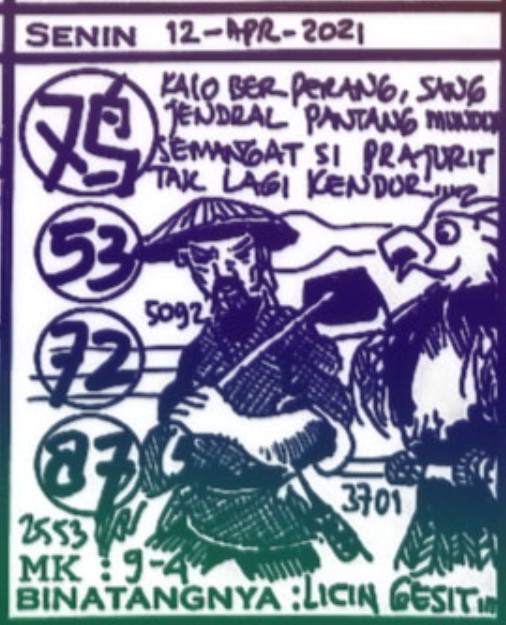 SENIN 12-APR-2021
鸡
KALO BER PERANG, SANG
JENDRAL PANTANG MUNDUR
SEMANGAT SI PRAJURIT
TAK LAGI KENDUR....
53
5092
72
87
3701
2553
MK : 9-4
BINATANGNYA : LICIN GESIT...